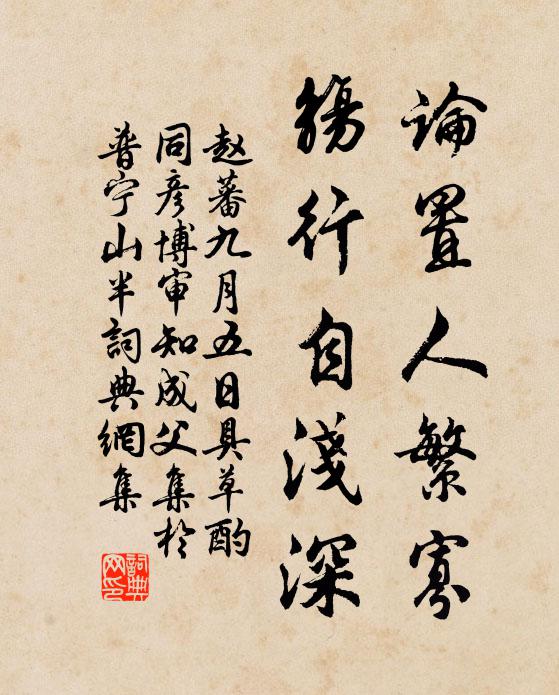 論置人繁寡
觴行自淺深
赵蕃九月五日具草酌
同彦博审知成父集於
普宁山半詞典網集
詞典
网印